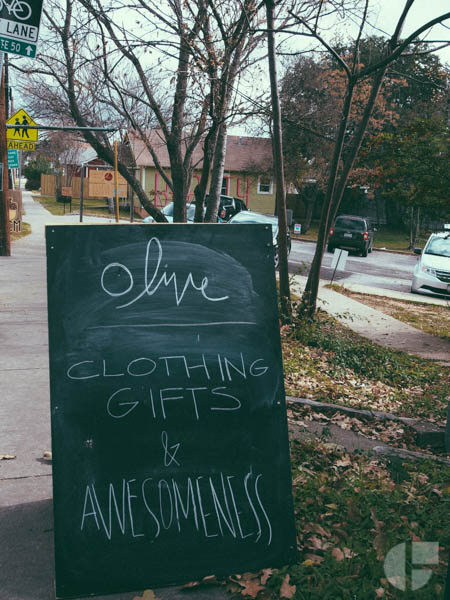 LANE
FE 50
AHEAD
Olive
CLOTHING
GIFTS
&
AWESOMENESS